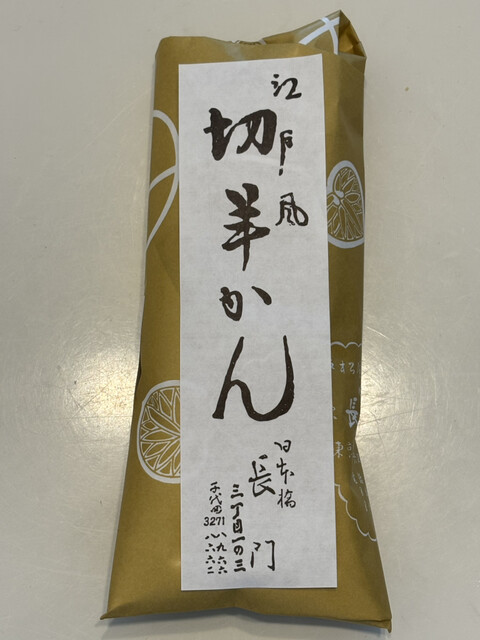 江戸風
切羊かん
日本橋
長門
三丁目一の三
千代田
3271
八九六六
八六六二
長